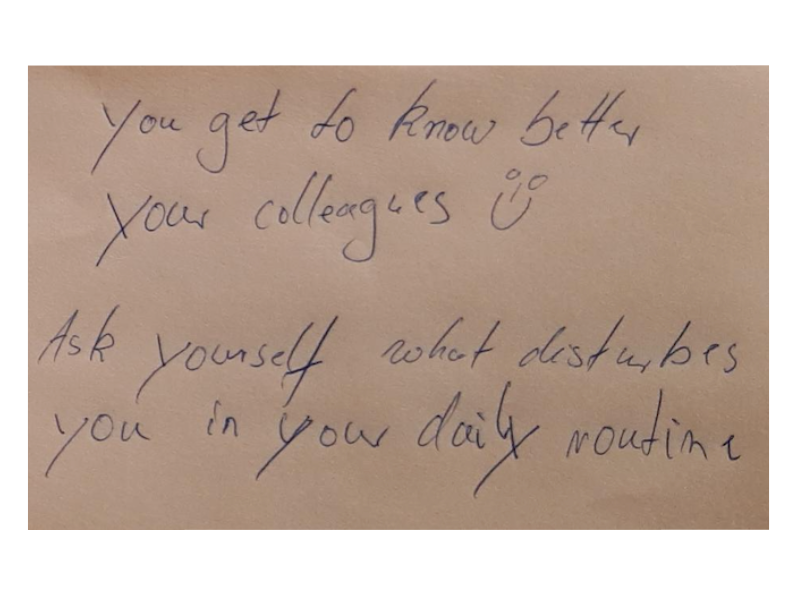 you get to know better
your colleagues
Ask yourself what disturbes
you in your daily routine